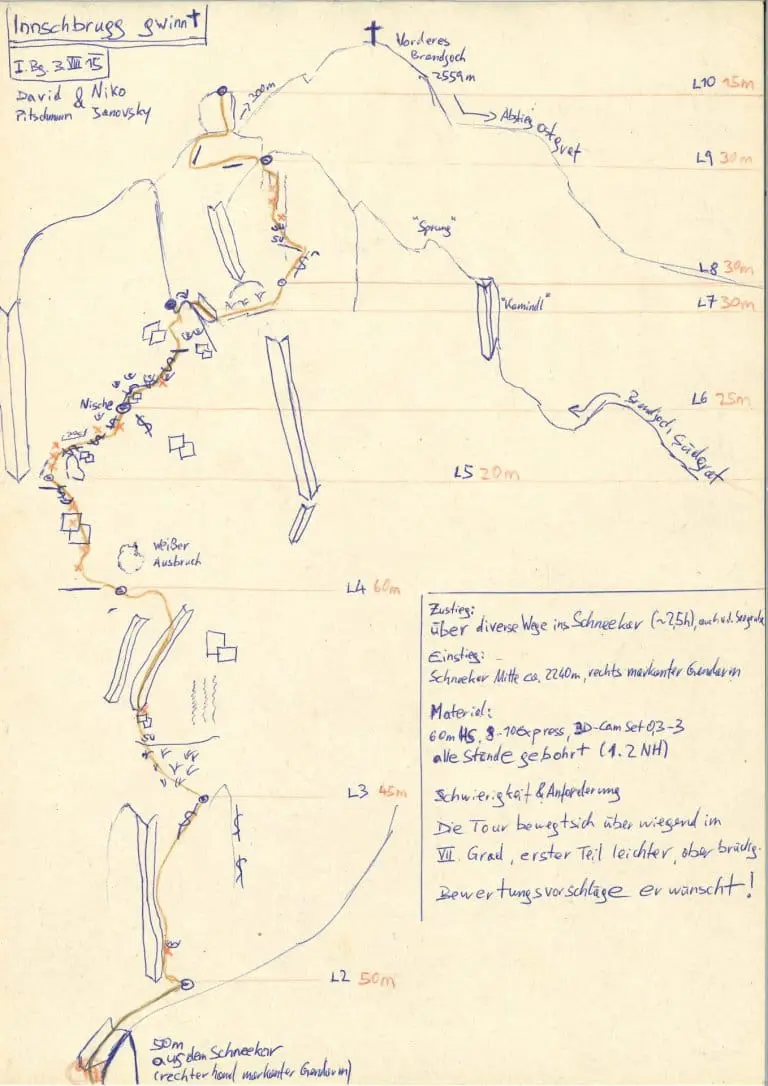 Innschbrugg gwinnt
I.Bg. 3.VIII 15
David & Niko
Pitschmann Janovsky
~300m
Vorderes
Brandjoch
2559m
Abstieg Ostgrat
L10 15m
L9 30m
"Sprung"
L8 30m
L7 30m
"Kamindl"
Nische
L6 25m
Brandjoch Südgrat
L5 20m
weißer
Ausbruch
L4 60m
Zustieg:
über diverse Wege ins Schneekar (~2,5h), auch v.d.
Einstieg:
Schneekar Mitte ca. 2240m, rechts markanter Gendarm
Material:
60m HS, 8-10 Express, 3D-Cam Set 0,3-3
alle Stände gebohrt (1.2 NH)
L3 45m
Schwierigkeit & Anforderung
Die Tour bewegt sich über wiegend im
VII. Grad, erster Teil leichter, aber brüchig.
Bewertungsvorschläge erwünscht!
L2 50m
50m
aus dem Schneekar
(rechter hand markanter Gendarm)